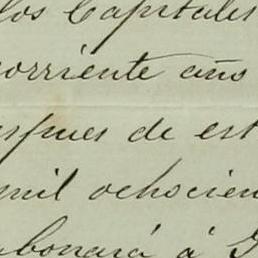 los Capitales
corriente año
espues de est
mil ochocien
bonará á